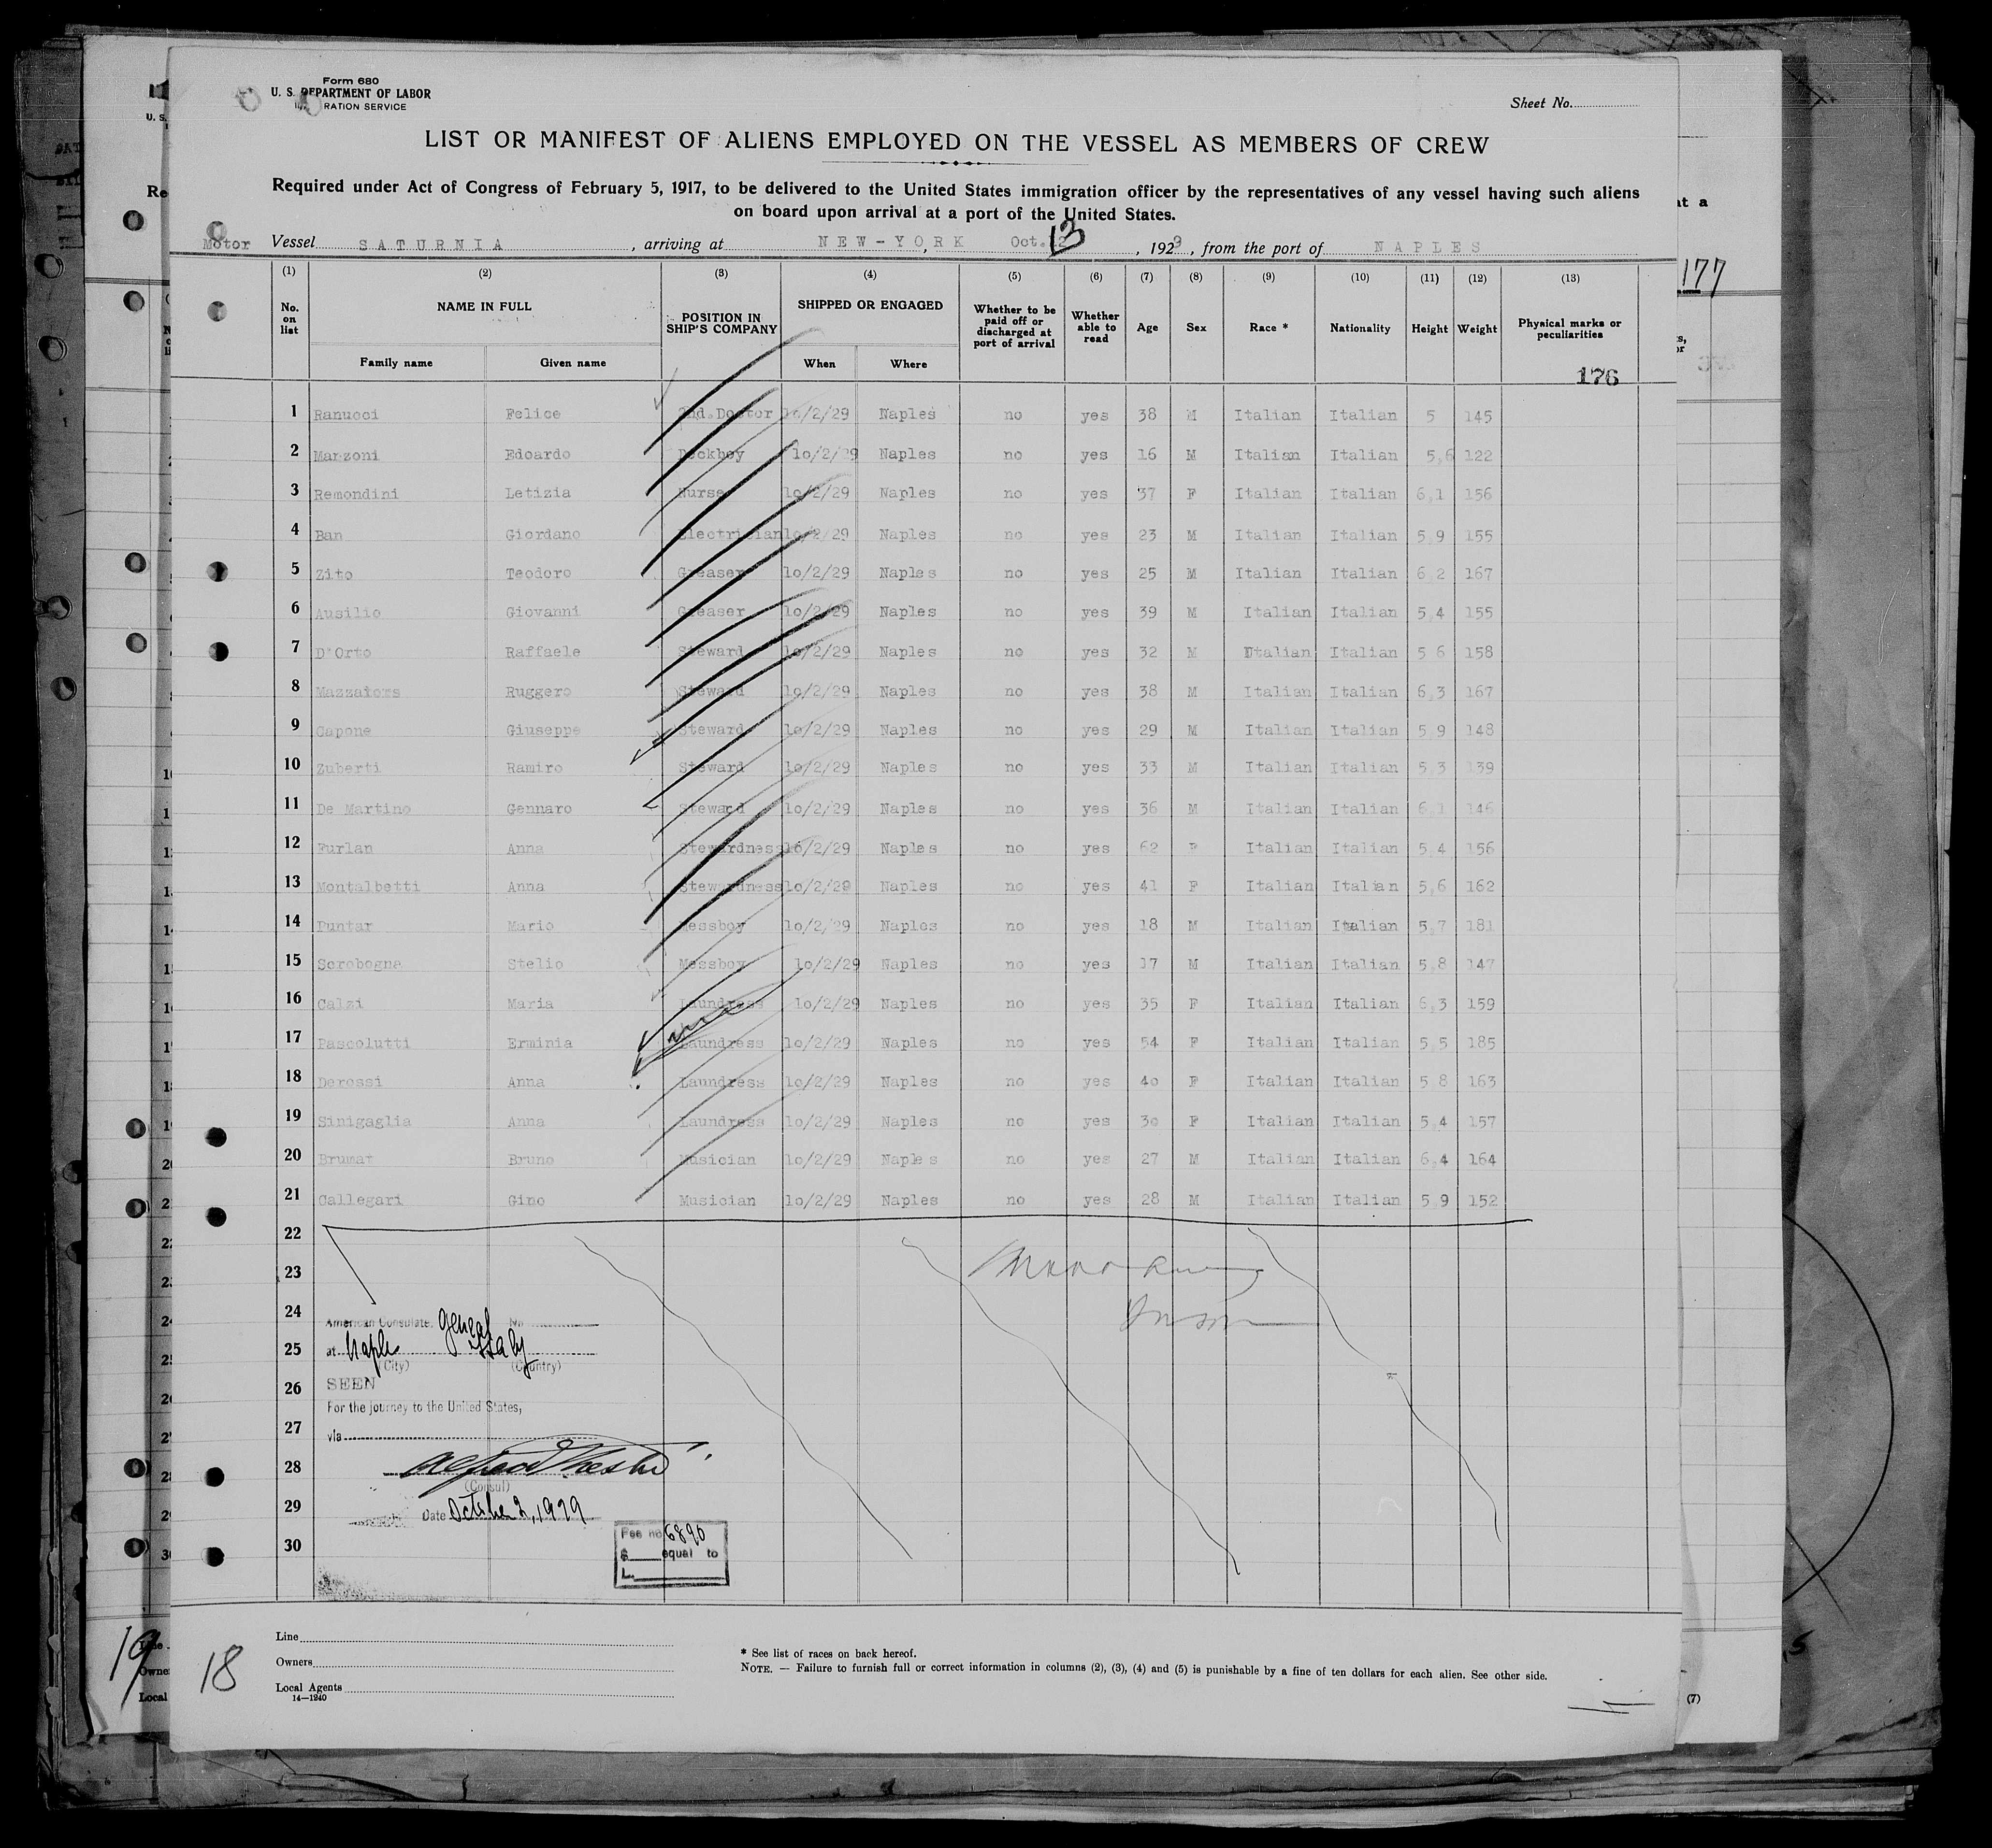 Form 680
U. S. DEPARTMENT OF LABOR
RATION SERVICE
Sheet No.
LIST OR MANIFEST OF ALIENS EMPLOYED ON THE VESSEL AS MEMBERS OF CREW
Required under Act of Congress of February 5, 1917, to be delivered to the United States immigration officer by the representatives of any vessel having such aliens
on board upon arrival at a port of the United States.
Motor Vessel SATURNIA, arriving at NEW-YORK, Oct. 13, 1929, from the port of NAPLES
177
(1) (2) (3) (4) (5) (6) (7) (8) (9) (10) (11) (12) (13)
No. on list NAME IN FULL POSITION IN SHIP'S COMPANY SHIPPED OR ENGAGED Whether to be paid off or discharged at port of arrival Whether able to read Age Sex Race * Nationality Height Weight Physical marks or peculiarities
Family name Given name When Where
176
1 Ranucci Felice 2nd.Doctor 10/2/29 Naples no yes 38 M Italian Italian 5 145
2 Manzoni Edoardo Deckboy 10/2/29 Naples no yes 16 M Italian Italian 5,6 122
3 Remondini Letizia Nurse 10/2/29 Naples no yes 37 F Italian Italian 6,1 156
4 Ban Giordano Electrician 10/2/29 Naples no yes 23 M Italian Italian 5,9 155
5 Zito Teodoro Greaser 10/2/29 Naples no yes 25 M Italian Italian 6,2 167
6 Ausilio Giovanni Greaser 10/2/29 Naples no yes 39 M Italian Italian 5,4 155
7 D'Orto Raffaele Steward 10/2/29 Naples no yes 32 M Italian Italian 5 6 158
8 Ruggero Steward 10/2/29 Naples no yes 38 M Italian Italian 6,3 167
9 Capone Giuseppe Steward 10/2/29 Naples no yes 29 M Italian Italian 5,9 148
10 Zuberti Ramiro Steward 10/2/29 Naples no yes 33 M Italian Italian 5,3 139
11 De Martino Gennaro Steward 10/2/29 Naples no yes 36 M Italian Italian 6,1 146
12 Furlan Anna Stewardness 10/2/29 Naples no yes 62 F Italian Italian 5,4 156
13 Montalbetti Anna Stewardness 10/2/29 Naples no yes 41 F Italian Italian 5,6 162
14 Puntar Mario Messboy 10/2/29 Naples no yes 18 M Italian Italian 5,7 181
15 Scrobogna Stelio Messboy 10/2/29 Naples no yes 17 M Italian Italian 5,8 147
16 Calzi Maria Laundress 10/2/29 Naples no yes 35 F Italian Italian 6,3 159
17 Pascolutti Erminia Laundress 10/2/29 Naples no yes 54 F Italian Italian 5,5 185
18 Derossi Anna Laundress 10/2/29 Naples no yes 40 F Italian Italian 5 8 163
19 Sinigaglia Anna Laundress 10/2/29 Naples no yes 30 F Italian Italian 5,4 157
20 Brumat Bruno Musician 10/2/29 Naples no yes 27 M Italian Italian 6,4 164
21 Callegari Gino Musician 10/2/29 Naples no yes 28 M Italian Italian 5,9 152
22
23
24
American Consulate General No
25
at Naples Italy
(City) (Country)
26
SEEN
For the journey to the United States,
27
via
28
(Consul)
29
Date October 2, 1929
Fee no 6890
$ equal to
L.
30
Line
Owners
Local Agents
14—1240
* See list of races on back hereof.
NOTE. — Failure to furnish full or correct information in columns (2), (3), (4) and (5) is punishable by a fine of ten dollars for each alien. See other side.
18
19
(7)